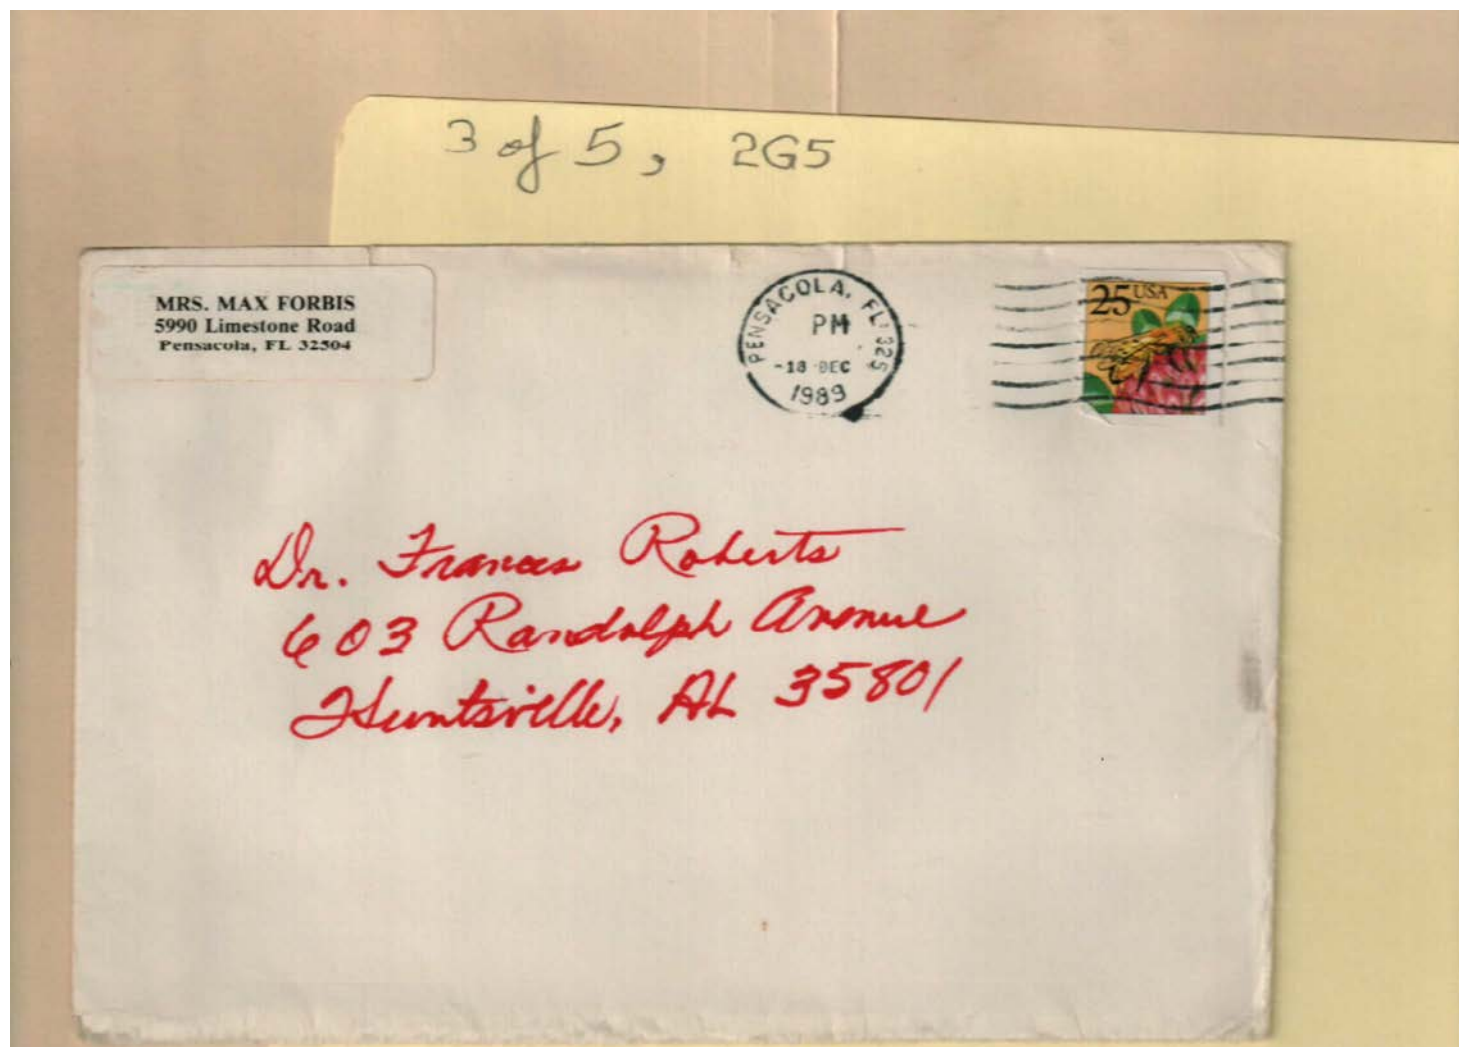 3 of 5, 2G5
MRS. MAX FORBIS
5990 Limestone Road
Pensacola, FL 32504
PENSACOLA, FL 325
PM
-18 DEC
1989
25 USA
Dr. Frances Roberts
603 Randolph Avenue
Huntsville, AL 35801